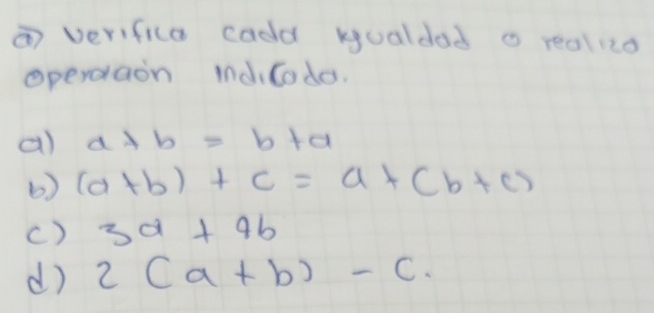 a) verifica cada igualdad o realiza
operación indicada.
a) a + b = b + a
b) (a + b) + c = a + (b + c)
c) 3a + 9b
d) 2 (a + b) - c.